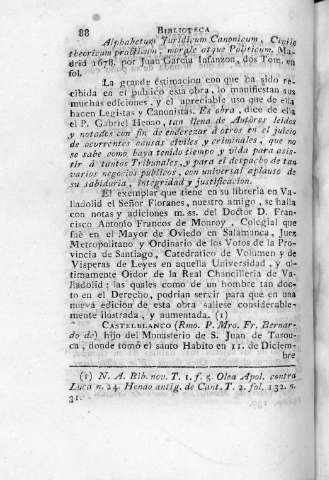 88 BIBLIOTECA
Alphabetum Juridicum Canonicum, Civile
theoricum practicum, morale atque Politicum. Ma-
drid 1678. por Juan Garcia Infanzon, dos Tom. en
fol.
La grande estimacion con que ha sido re-
cibida en el publico esta obra, lo manifiestan sus
muchas ediciones, y el apreciable uso que de ella
hacen Legistas y Canonistas. Es obra, dice de ella
el P. Gabriel Henao, tan llena de Autores leidos
y notados con fin de enderezar á otros en el juicio
de ocurrentes causas civiles y criminales, que no
se sabe como haya tenido tiempo y vida para asis-
tir á tantos Tribunales, y para el despacho de tan
varios negocios publicos, con universal aplauso de
su sabiduria, integridad y justificacion.
El exemplar que tiene en su libreria en Va-
lladolid el Señor Floranes, nuestro amigo, se halla
con notas y adiciones m. ss. del Doctor D. Fran-
cisco Antonio Francos de Monroy, Colegial que
fué en el Mayor de Oviedo en Salamanca, Juez
Metropolitano y Ordinario de los Votos de la Pro-
vincia de Santiago, Catedratico de Volumen y de
Visperas de Leyes en aquella Universidad, y ul-
timamente Oidor de la Real Chancilleria de Va-
lladolid: las quales como de un hombre tan doc-
to en el Derecho, podrian servir para que en una
nueva edicion de esta obra saliese considerable-
mente ilustrada, y aumentada. (1)
CASTELBLANCO (Rmo. P. Mro. Fr. Bernar-
do de) hijo del Monasterio de S. Juan de Tarou-
ca, donde tomó el santo Habito en 11. de Diciem-
bre
(1) N. A. Bib. nov. T. 1. f. 5. Olea Apol. contra
Luca n. 24. Henao antig. de Cant. T. 2. fol. 132. n.
31.